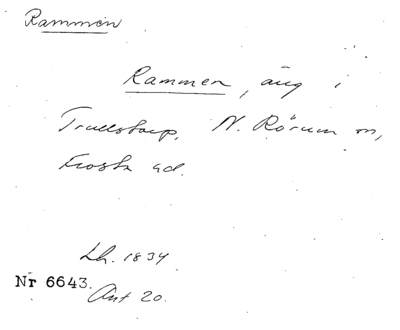 Rammen
Rammen, äng i
Trulstorp, N. Rörum sn,
Frosta hd.
Lh. 1834
Nr 6643.
Akt 20.